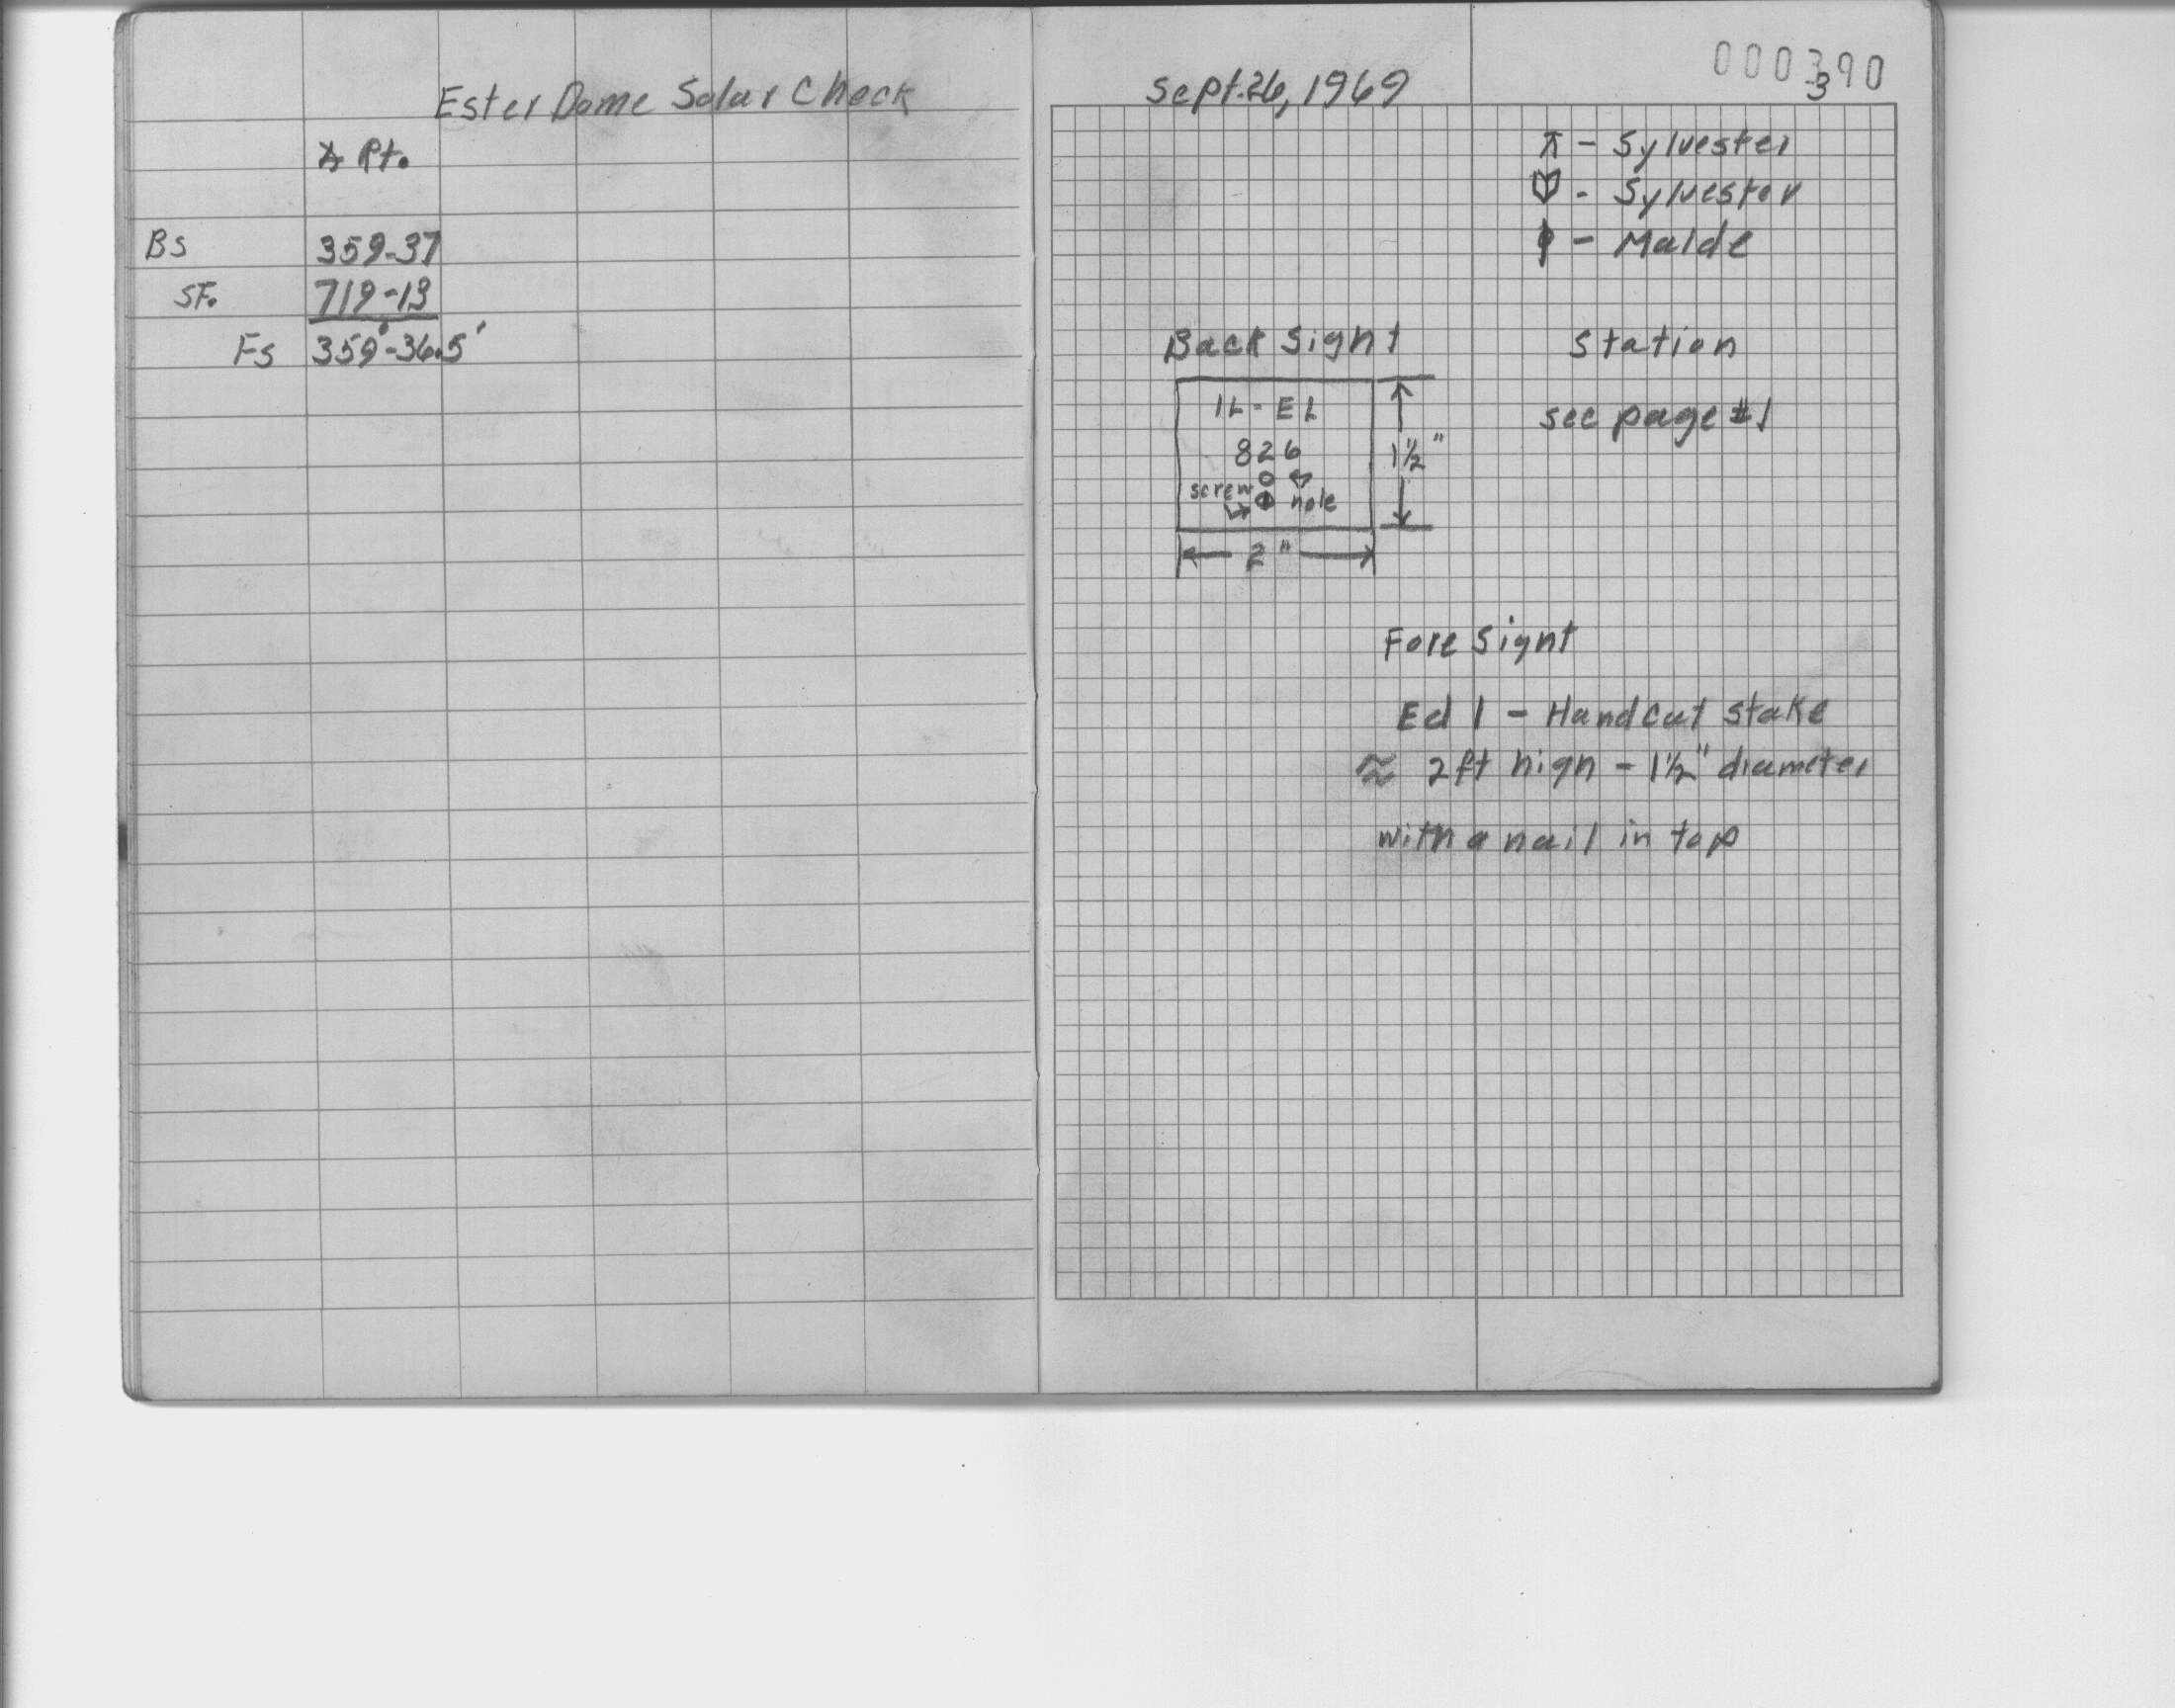 Ester Dome Solar Check
∡ Pt.
BS 359-37
SF. 719-13
FS 359°-36.5'
Sept. 26, 1969
000390
3
⊼ - Sylvester
- Sylvester
- Malde
Back Sight
Station
IL-EL
826
screw
hole
1½"
2"
see page #1
Fore Sight
Ed 1 - Handcut stake
≈ 2ft high - 1½" diameter
with a nail in top